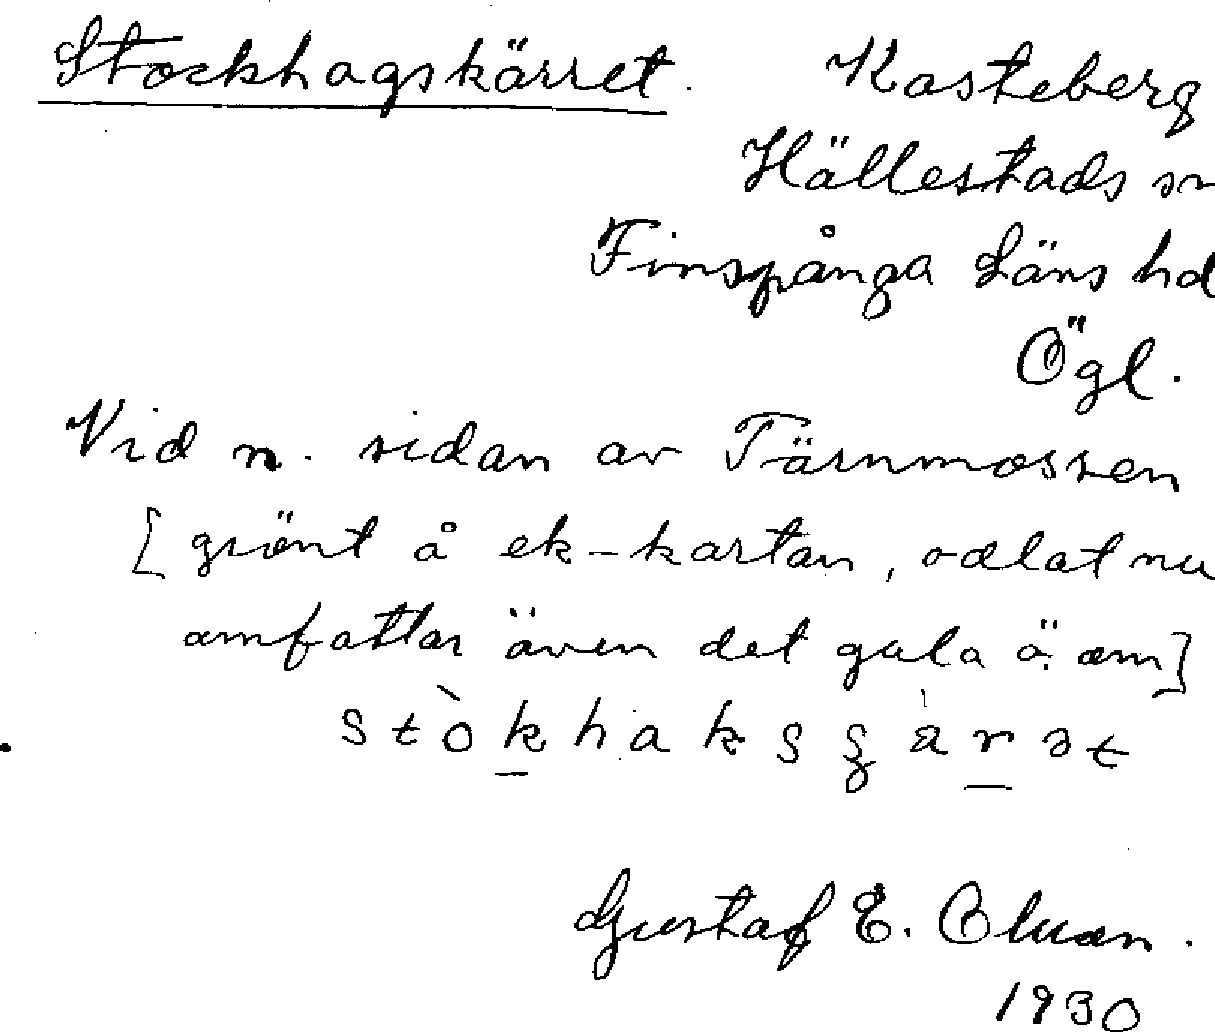 Stockhagskärret. Kasteberg
Hällestads sn
Finspånga Läns hd
Ögl.
Vid n. sidan av Tärnmossen
[grönt å ek-kartan, odlat nu
omfattar även det gula ä. om]
Gustaf E.
1930